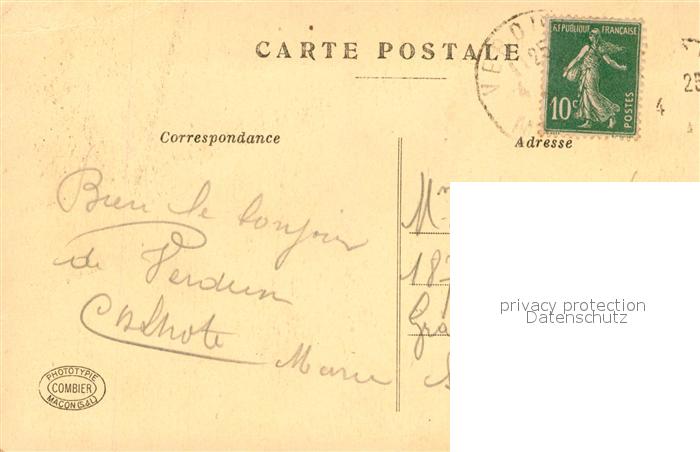 CARTE POSTALE
VERDUN
25
4
REPUBLIQUE FRANÇAISE
10c
POSTES
25
4
Correspondance
Adresse
Bien le bonjour
de Verdun
Marie
M
187
Gra
privacy protection
Datenschutz
PHOTOTYPIE
COMBIER
MACON (S.&L)